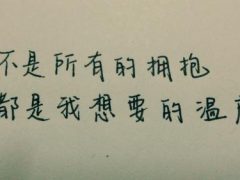 不是所有的拥抱
都是我想要的温